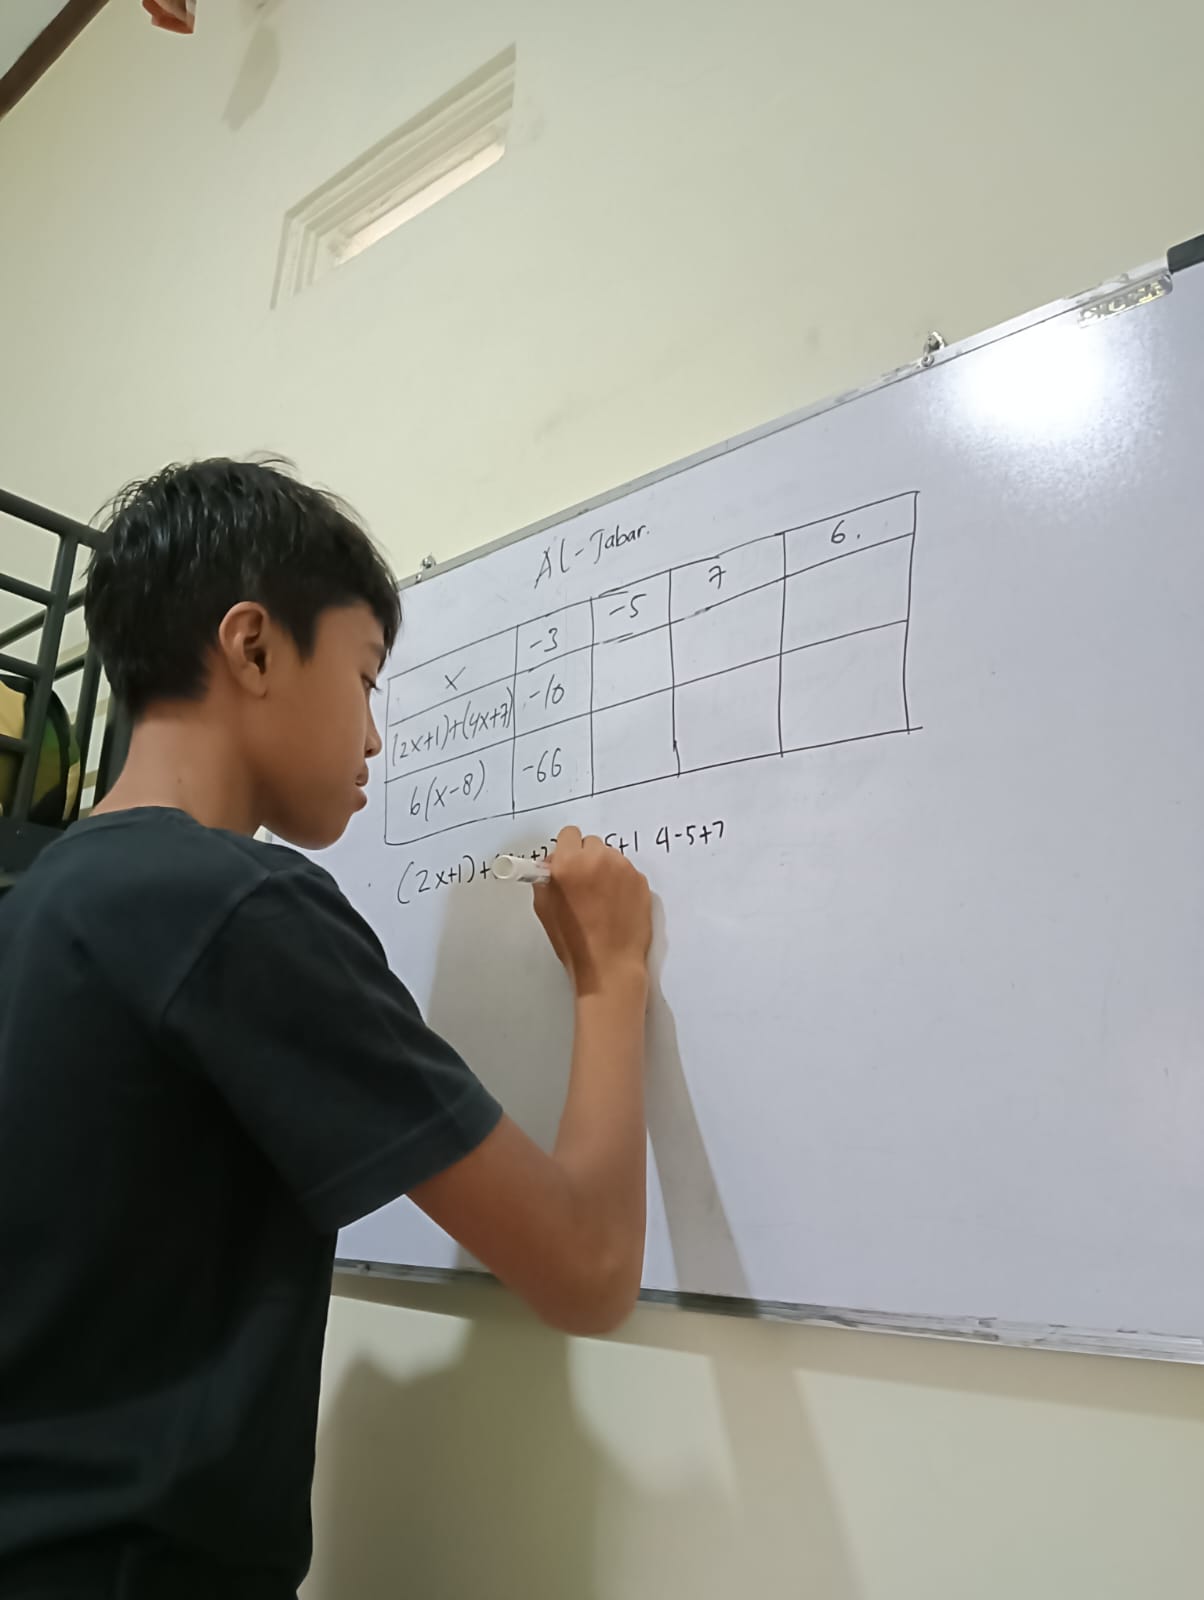 Al-Jabar.
x -3 -5 7 6.
(2x+1)+(4x+7) -10
6(x-8) -66
(2x+1)+ 5+1 4-5+7